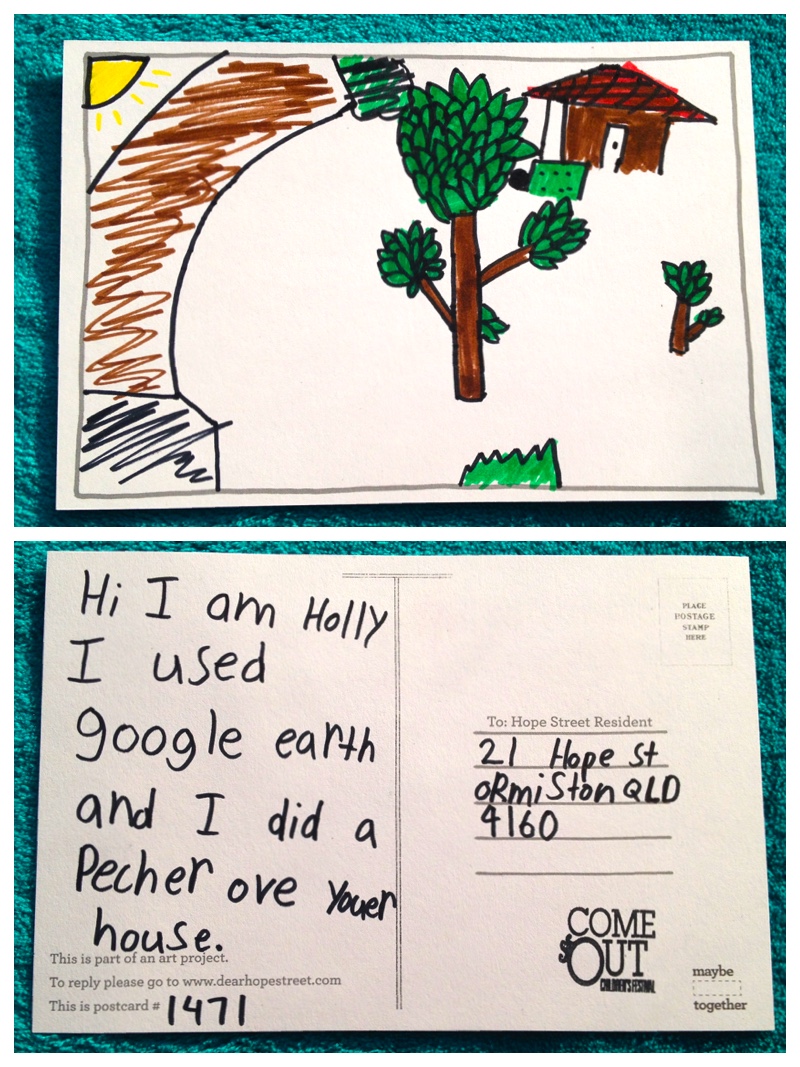 Hi I am Holly
I used
google earth
and I did a
Pecher ove youer
house.
This is part of an art project.
To reply please go to www.dearhopestreet.com
This is postcard # 1471
PLACE
POSTAGE
STAMP
HERE
To: Hope Street Resident
21 Hope st
oRmiston QLD
4160
COME
OUT
CHILDREN'S FESTIVAL
maybe
together